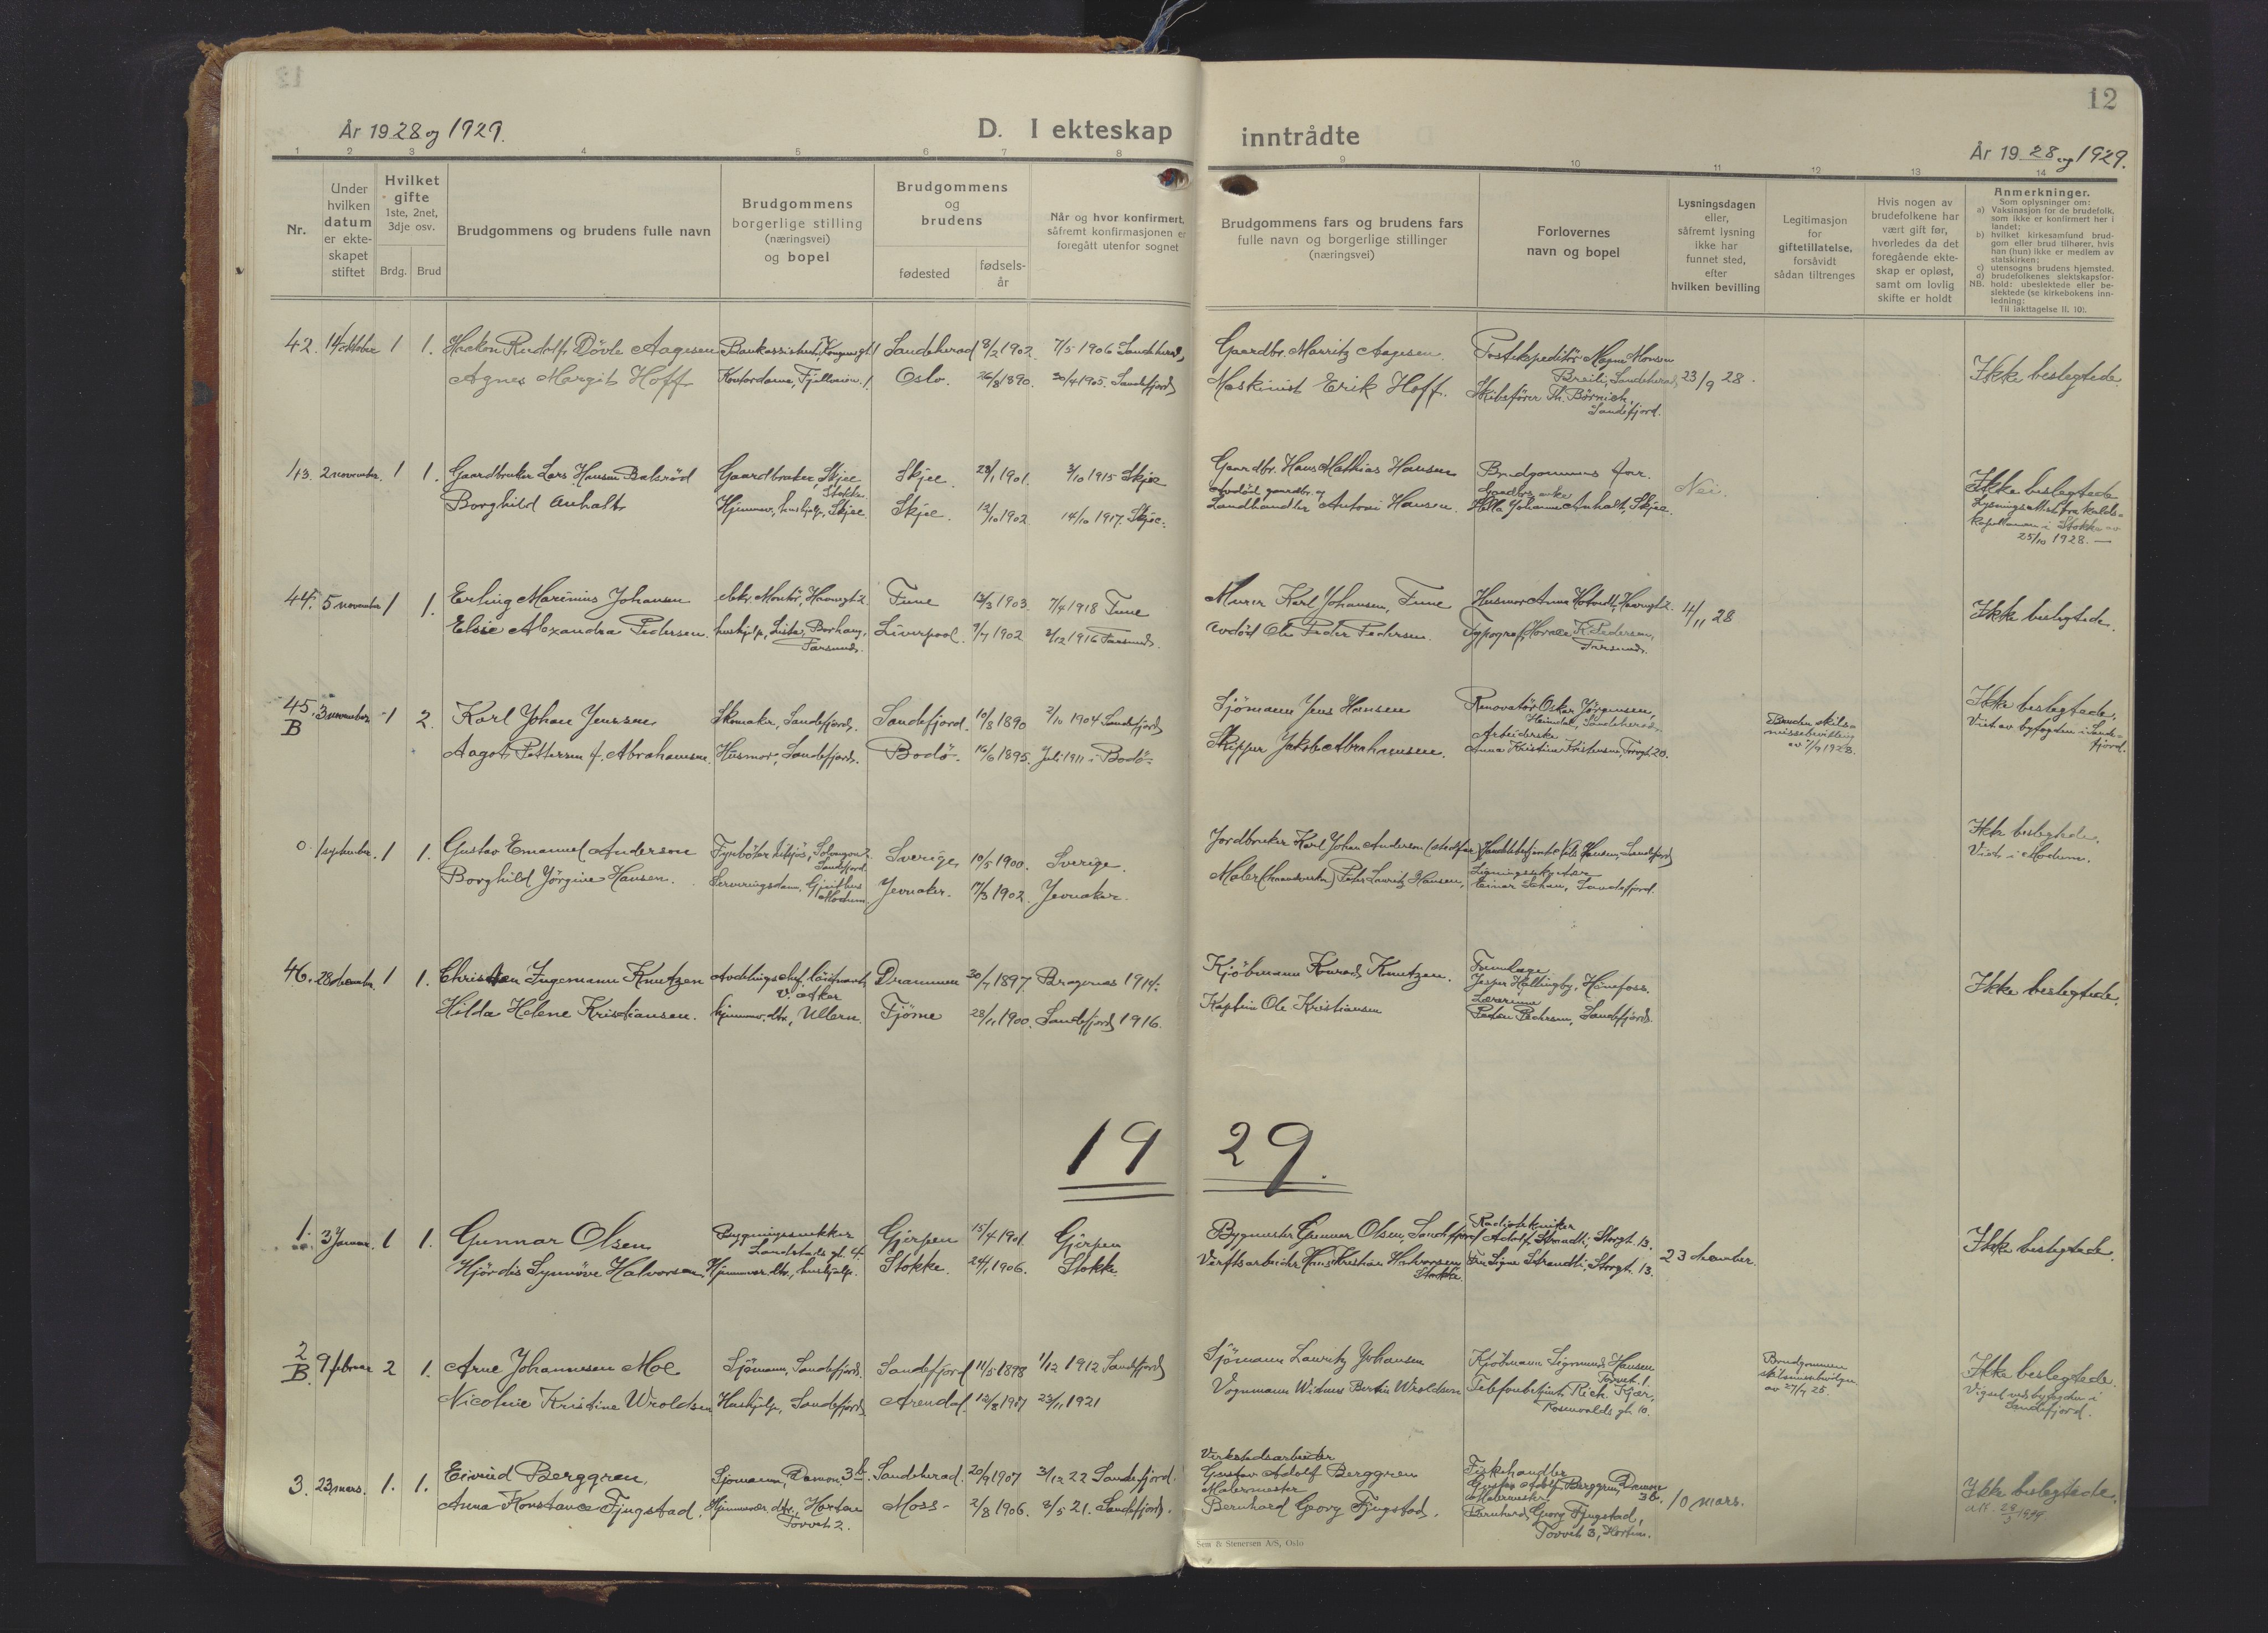 12
År 1928 og 1929.
D. I ekteskap inntrådte
År 1928 og 1929.
1 2 3 4 5 6 7 8 9 10 11 12 13 14
Nr.
Under hvilken datum er ekte-skapet stiftet
Hvilket gifte 1ste, 2net, 3dje osv.
Brdg. Brud
Brudgommens og brudens fulle navn
Brudgommens borgerlige stilling (næringsvei) og bopel
Brudgommens og brudens
fødested
fødsels-år
Når og hvor konfirmert, såfremt konfirmasjonen er foregått utenfor sognet
Brudgommens fars og brudens fars fulle navn og borgerlige stillinger (næringsvei)
Forlovernes navn og bopel
Lysningsdagen eller, såfremt lysning ikke har funnet sted, efter hvilken bevilling
Legitimasjon for giftetillatelse, forsåvidt sådan tiltrenges
Hvis nogen av brudefolkene har vært gift før, hvorledes da det foregående ekte-skap er opløst, samt om lovlig skifte er holdt
Anmerkninger.
Som oplysninger om:
a) Vaksinasjon for de brudefolk, som ikke er konfirmert her i landet;
b) hvilket kirkesamfund brud-gom eller brud tilhører, hvis han (hun) ikke er medlem av statskirken;
c) utensogns brudens hjemsted.
d) brudefolkenes slektskapsfor-hold: ubeslektede eller be-slektede (se kirkebokens inn-ledning:
NB.
Til iakttagelse II. 10).
42. 14 oktober 1 1. Haakon Rudolf Dövle Aagesen Bankassistent, Kongensgt. 1 Sandeherad 8/2 1902. 7/5 1906 Sandeherad Gaardbr. Marritz Aagesen. Postekspeditör Magne Monsen
Breili, Sandeherad 23/9 28. Ikke beslegtede.
Agnes Margit Hoff Kontordame, Fjellveien 1 Oslo. 26/8 1890. 30/4 1905. Sandefjord Maskinist Erik Hoff. Skibsfører Th. Börnick,
Sandefjord.
43. 2 november. 1 1. Gaardbruker Lars Hansen Balsröd Gaardbruker, Skjee Stokke Skjee. 28/1 1901. 3/10 1915 Skjee Gaardbr. Hans Mathias Hansen Brudgommens far. Nei. Ikke beslegtede
Borghild Anholt Hjemmev., hushjelp, Skjee. Skjee. 12/10 1902. 14/10 1917. Skjee. Avdöd gaardbr. og
Landhandler Antoni Hansen. Johanne Anholt, Skjee.
Stokke
25/10 1928.
44. 5 november 1 1. Erling Marinius Johansen elektr. Montör, Havnegt. 2. Tune 12/3 1903. 7/4 1918 Tune Murer Karl Johansen, Tune 4/11 28 Ikke beslegtede.
Elsie Alexandra Pedersen. hushjelp, Lista, Borhaug, Farsund. Liverpool. 9/7 1902 3/12 1916 Farsund. Avdöd Ole Peder Pedersen. Typograf K. Pedersen,
Farsund.
45. B 3 november 1 2. Karl Johan Jenssen Skomaker, Sandefjord. Sandefjord. 10/8 1890 2/10 1904 Sandefjord Sjömann Jens Hansen Renovatör Oskar Jörgensen,
Heimdal, Sandeherad
Ikke beslegtede.
Viet av byfogden i Sande-
fjord.
Aagot Pettersen f. Abrahamsen. Husmor, Sandefjord. Bodö. 16/6 1895. Juli 1911 i Bodö. Skipper Jakob Abrahamsen. Arbeiderske
Anna Kristine Kristensen, Torvgt. 20. Bruden skils-
missebevilling
av 7/9 1928.
0. 1 september. 1 1. Gustav Emanuel Anderson Sandefjord Sverige, 10/5 1900. Sverige. Jordbruker Karl Johan Anderson Hansen, Sandefjord Ikke beslegtede.
Viet i Modum.
Borghild Jörgine Hansen. Serveringsdame, Geithus Modum Jevnaker. 17/3 1902. Jevnaker. Maler Peter Lauritz Hansen, Einar Johan, Sandefjord.
46. 28 desember. 1 1. Christian Ingemann Knutzen Avdelingschef, V. Aker Drammen 30/7 1897 Bragernes 1914. Kjöbmann Konrad Knutzen. Jesper Hallingby, Hönefoss. Ikke beslegtede.
Hilda Helene Kristiansen. hjemmev. dtr., Ullern. Tjöme 28/11 1900. Sandefjord 1916. Kaptein Ole Kristiansen Lærerinne
Pedersen, Sandefjord.
1929.
1. 3 Januar. 1 1. Gunnar Olsen Bygningssnekker
Landstads gt. 4. Gjerpen 15/4 1901. Gjerpen Bygmester Gunnar Olsen, Sandefjord Radiotekniker
Adolf Strandli, Storgt. 13. 23 desember. Ikke beslegtede.
Hjördis Synnöve Halvorsen Hjemmev. dtr., hushjelp. Stokke. 24/1 1906. Stokke. Verftsarbeider Hans Kristian Halvorsen Stokke. Fru Signe Strandli, Storgt. 13.
2 B. 9 februar 2 1. Arne Johannesen Moe Sjömann, Sandefjord. Sandefjord 11/5 1898 1/12 1912 Sandefjord Sjömann Lauritz Johansen Kjöbmann Sigmund Hansen
Torvet 1. Brudgommen
skilsmissebevilgn.
av 27/9 25. Ikke beslegtede.
Viet ved byfogden i
Sandefjord.
Nicoline Kristine Wroldsen Hushjelp, Sandefjord Arendal. 12/8 1907 23/11 1921 Vognmann Wroldsen Telefonbetjent Rich. Kjær,
Rosenvolds gt. 10.
3. 23 mars. 1. 1. Eivind Berggren, Sjømann, 3 b. Sandeherad. 20/9 1907 3/12 22 Sandefjord. Verkstedsarbeider
Gustav Adolf Berggren Fiskehandler
Gustav Adolf Berggren, 3 b. 10 mars. Ikke beslegtede.
Anna Konstance Fjugstad. Hjemmevær. dtr., Horten
Torvet 2. Moss 2/8 1906. 3/5 21. Sandefjord. Malermester
Bernhard Georg Fjugstad. Malermester
Bernhard Georg Fjugstad,
Torvet 3, Horten.
Sem & Stenersen A/S, Oslo